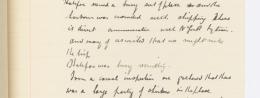 Halifax seemed a busy sort of place as the
harbour was crowded with shipping. There
is direct communication with N. York by train.
and many of us wished that we might make
the trip.
Halifax was busy
From a casual inspection we gathered that there
was a large party of in the place